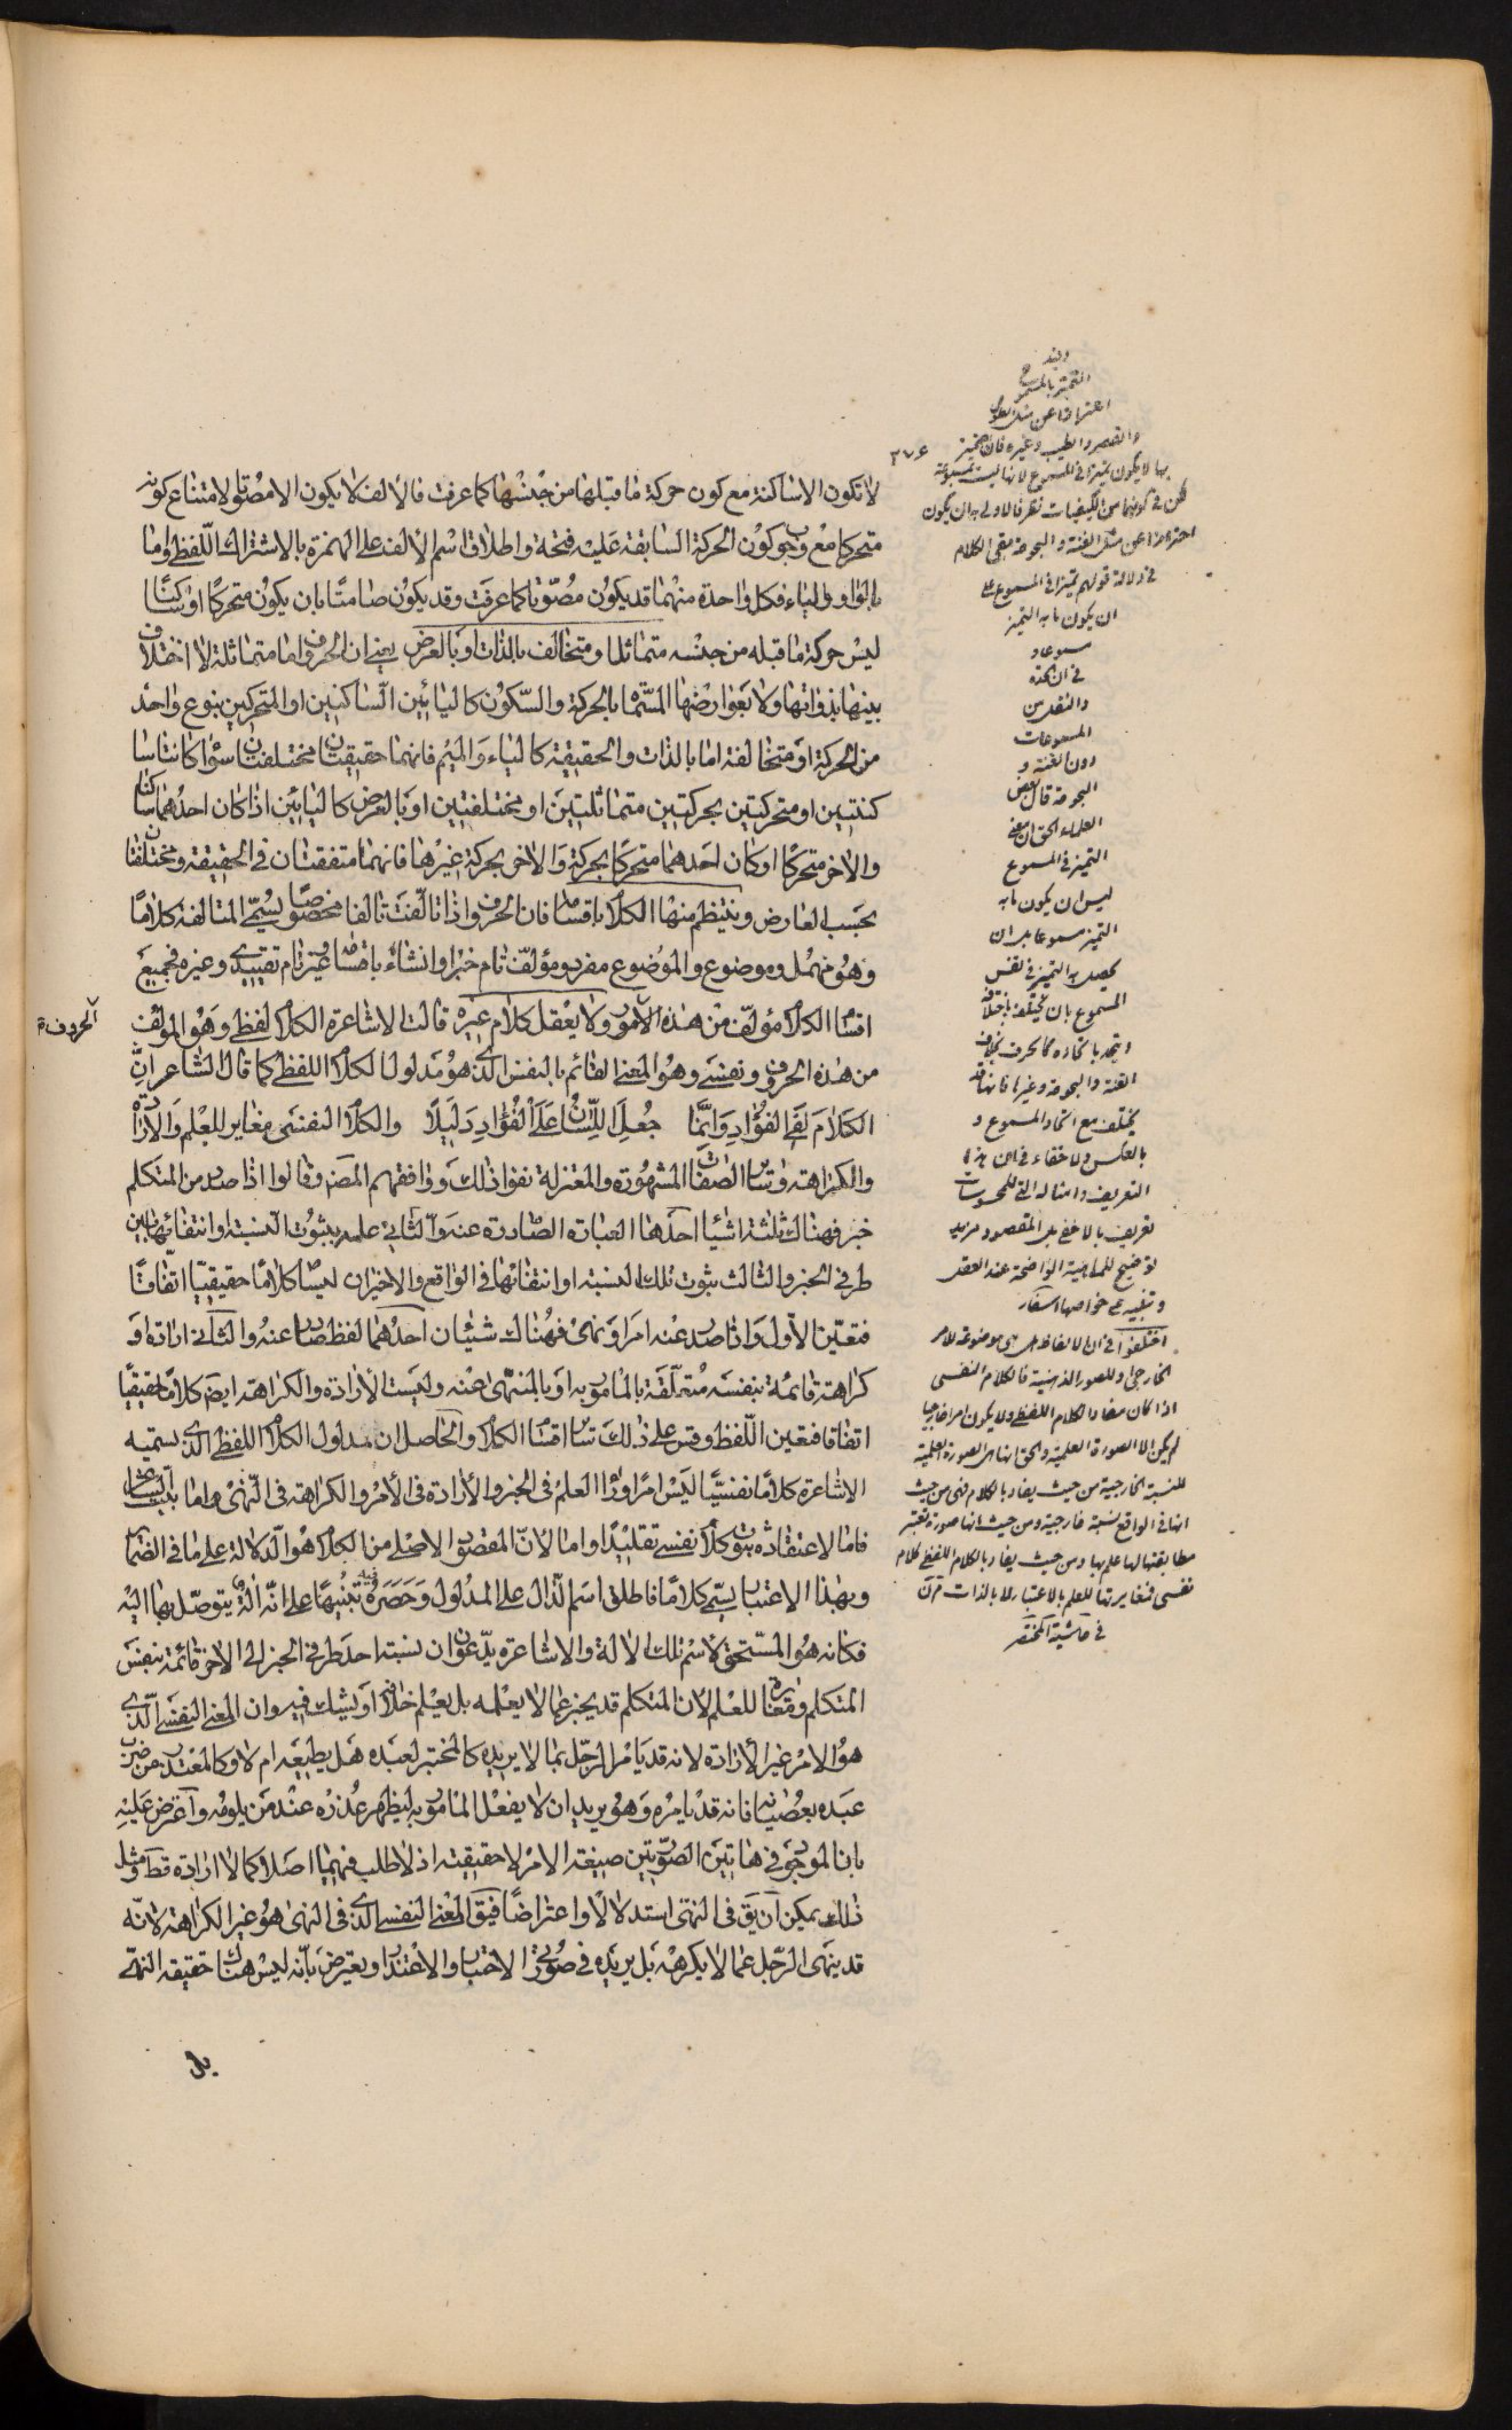 لا تكون الا ساكنة مع كون حركة ما قبلها من جنسها كما عرفت فالالف لا يكون الا مصوّتا لامتناع كونه
متحركا مع وجوب كون الحركة السابقة عليه فتحة واطلاق اسم الالف على الهمزة بالاشتراك اللّفظى واما
الواو والياء فكل واحدة منهما قد يكون مصوّتا كما عرفت وقد يكون صامتًا بان يكون متحركًا او ساكنًا
ليس حركة ما قبله من جنسه متماثلا ومتخالف بالذات او بالعرض يعنى ان الحروف اما متماثلة لا اختلاف
بينها بذواتها ولا بعوارضها المسمّاة بالحركة والسّكون كاليائين الساكنين او المتحركين بنوع واحد
من الحركة او متخالفة اما بالذات والحقيقة كالياء والميم فانهما حقيقتان مختلفتان سواء كانتا سا
كنتين او متحركتين بحركتين متماثلتين او مختلفتين او بالعرض كاليائين اذا كان احدهما ساكنا
والاخر متحركًا او كان احدهما متحركًا بحركة والاخر بحركة غيرها فانهما متفقتان في الحقيقة ومختلفتان
بحسب العارض وينتظم منها الكلام باقسامه فان الحروف اذا تالّفت تالفا مخصوصًا يسمّى المتالفة كلامًا
وهو مهمل وموضوع والموضوع مفرد ومؤلف تام خبر او انشاء باقسامه غير تام تقييدى وغيره فجميع
اقسام الكلام مؤلف من هذه الامور ولا يعقل كلام غيره قالت الاشاعرة الكلام لفظى وهو المؤلف
الحروف
من هذه الحروف ونفسى وهو المعنى القائم بالنفس الذى هو مدلول الكلام اللفظى كما قال الشاعر انّ
الكلام لفى الفؤاد وانّما جُعِلَ اللّسان على الفؤاد دليلًا والكلام النفسى مغاير للعلم والارادة
والكراهة وسائر الصفات المشهورة والمعتزلة نفوا ذلك ووافقهم المصنف وقالوا اذا صدر من المتكلم
خبر فهناك ثلثة اشياء احدها العبارة الصادرة عنه والثانى علمه بثبوت النسبة او انتفائها بين
طرفى الخبر والثالث ثبوت تلك النسبة او انتفائها فى الواقع والاخيران ليسا كلامًا حقيقيّا اتفاقًا
فتعيّن الاول واذا صدر عنه امر او نهى فهناك شيئان احدهما لفظ صادر عنه والثانى ارادة او
كراهة قائمة بنفسه متعلّقة بالمامور به او بالمنهى عنه وليست الارادة والكراهة ايضا كلامًا حقيقيًا
اتفاقا فتعين اللّفظ وقس على ذلك سائر اقسام الكلام والحاصل ان مدلول الكلام اللفظى الذى يسمّيه
الاشاعرة كلامًا نفسيًّا ليس امرًا وراء العلم فى الخبر والارادة فى الامر والكراهة فى النّهى واما بيت الشاعر
فاما لاعتقاده ثبوت كلام نفسى تقليدًا واما لانّ المقصود الاصلى من الكلام هو الدلالة على ما فى الضمائر
وبهذا الاعتبار يسمّى كلامًا فاطلق اسم الدّال على المدلول وحصره فيه تنبيهًا على انّه آلة يتوصّل بها اليه
فكانه هو المستحق لاسم تلك الالة والاشاعرة يدّعون ان نسبة احد طرفى الخبر الى الاخر قائمة بنفس
المتكلم ومغايرة للعلم لان المتكلم قد يخبر عما لا يعلمه بل يعلم خلافه او يشك فيه وان المعنى النفسى الّذى
هو الامر غير الارادة لانه قد يامر الرّجل بما لا يريده كالمختبر لعبده هل يطيعه ام لا وكالمعتذر من ضرب
عبده بعصيانه فانه قد يامره وهو يريد ان لا يفعل المامور به ليظهر عذره عند من يلومه واعترض عليه
بان الموجود فى هاتين الصّورتين صيغة الامر لا حقيقته اذ لا طلب فيهما اصلا كما لا ارادة قطعا ومثل
ذلك يمكن ان يق فى النهى استدلالًا واعتراضًا فيق المعنى النفسى الذى فى النهى هو غير الكراهة لانّه
قد ينهى الرّجل عما لا يكرهه بل يريده فى صورتى الاختبار والاعتذار ويعترض بانّه ليس هناك حقيقة النهى
بل
٣٧٤
والقصر والطيب وغيره فان
بها لا يكون تميزا فى المسموع لانها ليست بمسموعة
لكن فى كونهما من الكيفيات نظر فالاولى ان يكون
احترازا عن مثل الغنة والبحوحة بقى الكلام
فى دلالة قولهم تميزا فى المسموع على
ان يكون ما به التميز
مسموعا و
المسموعات
دون الغنة و
البحوحة قال بعض
العلماء الحق ان معنى
التميز فى المسموع
ليس ان يكون ما به
التميز مسموعا بل ان
يحصل به التميز فى نفس
المسموع بان يختلف باختلافه
ويتحد باتحاده كالحرف بخلاف
الغنة والبحوحة وغيرها فانها قد
يختلف مع اتحاد المسموع و
بالعكس ولا خفاء فى ان هذا
التعريف وامثاله التى للمحسوسات
تعريف بالاخفى بل المقصود مزيد
توضيح للماهية الواضحة عند العقل
وتنبيه على خواصها
اختلفوا فى ان الالفاظ هل هى موضوعة للامر
الخارجى او للصور الذهنية فالكلام النفسى
اذا كان مفاد الكلام اللفظى ولا يكون امرا خارجيا
لم يكن الا الصورة العلمية والحق انها الصورة العلمية
للنسبة الخارجية من حيث يفاد بالكلام فهى من حيث
انها فى الواقع نسبة خارجية ومن حيث انها صورة تعتبر
مطابقتها لها علم بها ومن حيث يفاد بالكلام اللفظى كلام
نفسى فمغايرتها للعلم بالاعتبار لا بالذات
فى حاشية المختصر